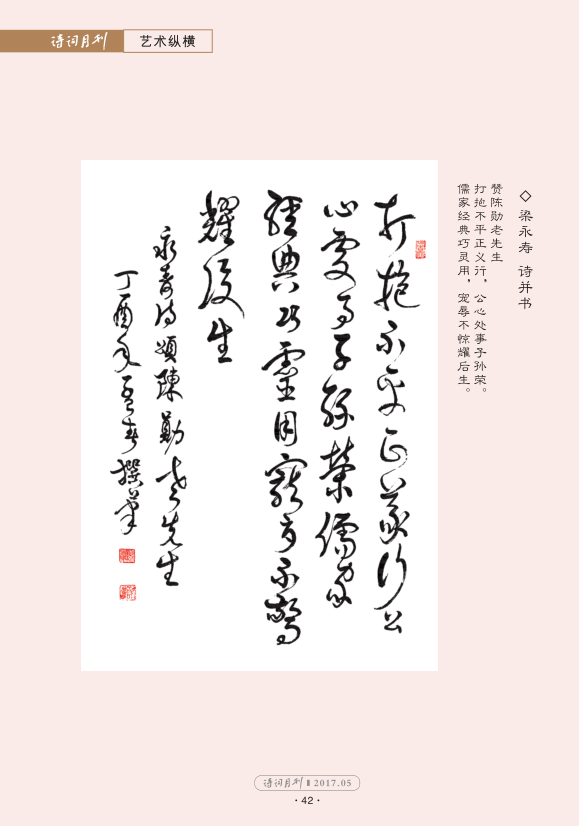 诗词月刊 艺术纵横
◇ 梁永寿 诗并书
赞陈勋老先生
打抱不平正义行，公心处事子孙荣。
儒家经典巧灵用，宠辱不惊耀后生。
打抱不平正義行公
心處事子孫榮儒家
經典巧靈用寵辱不驚
耀後生
永壽詩頌陳勛老先生
丁酉年孟春撰筆
诗词月刊 2017.05
·42·